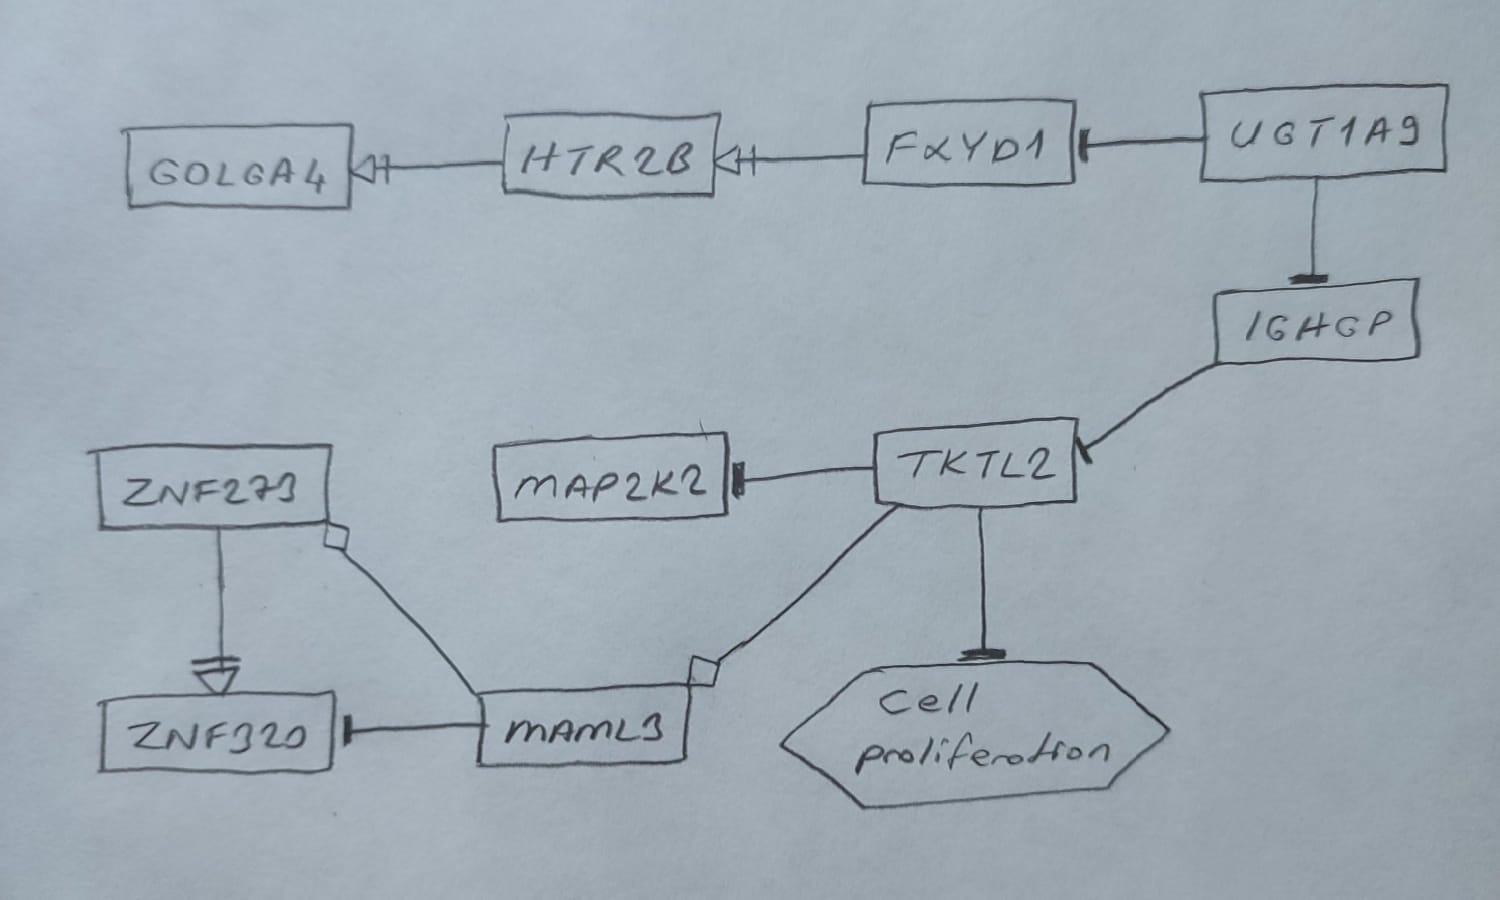 GOLGA4
HTR2B
FXYD1
UGT1A9
IGHGP
ZNF273
MAP2K2
TKTL2
ZNF320
MAML3
Cell
proliferation